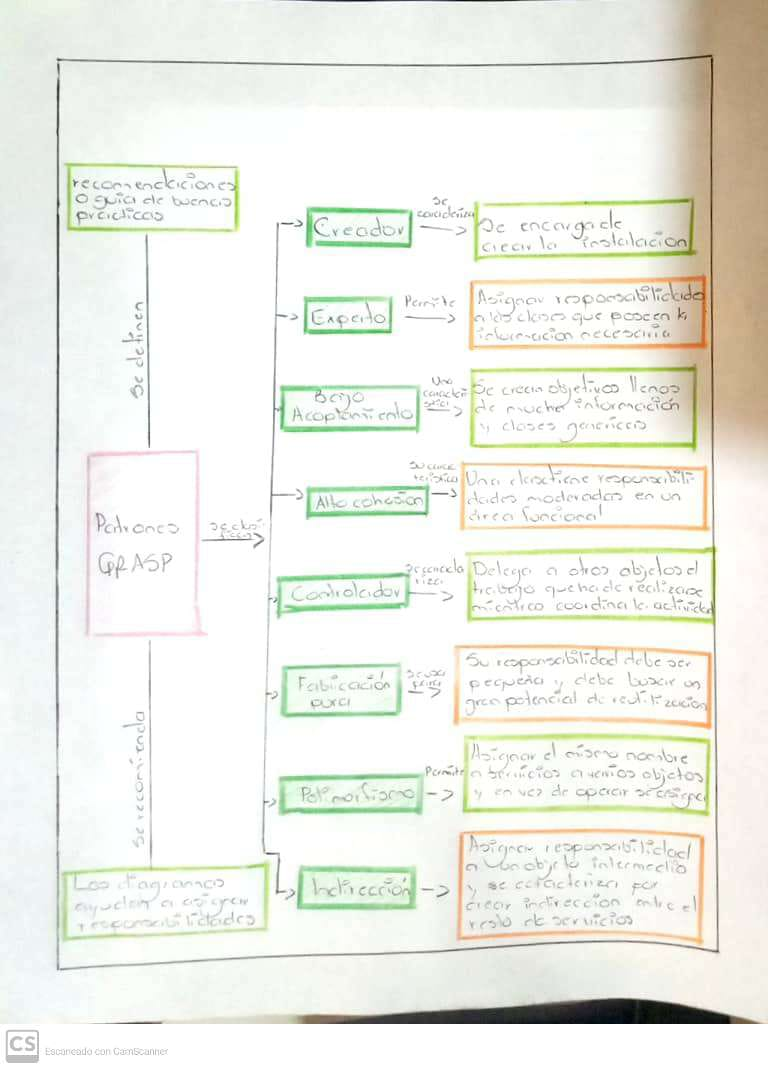 recomendaciones
o guía de buenas
practicas
Se definen
Patrones
GRASP
se clasi
fican
Se recomienda
Los diagramas
ayudan a asignar
responsabilidades
Creador
Se
caracteriza
Se encarga de
crear la instalación
Experto
Permite
Asignar responsabilidad
a las clases que poseen la
información necesaria
Bajo
Acoplamiento
Una
caracterí
stica
Se crean objetivos llenos
de mucha información
y clases genericas
Alta cohesión
Su carac
teristica
Una clase tiene responsabili
dades moderadas en un
área funcional
Controlador
Se caracte
riza
Delega a otros objetos el
trabajo que ha de realizarse
mientras coordina la actividad
Fabricación
pura
Se usa
para
Su responsabilidad debe ser
pequeña y debe buscar un
gran potencial de reutilización
Polimorfismo
Permite
Asignar el mismo nombre
a servicios a varios objetos
y en vez de operar se asigna
Indirección
Asignar responsabilidad
a un objeto intermedio
y se caracteriza por
crear indirección entre el
resto de servicios
CS Escaneado con CamScanner